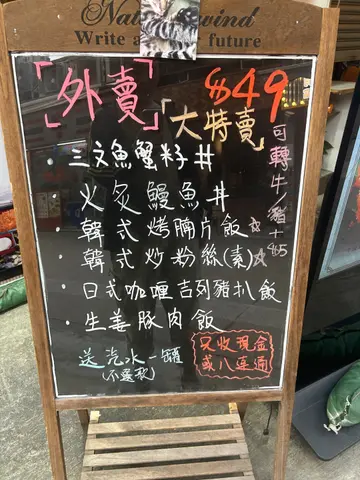 Write a future
「外賣」$49
「大特賣」
· 三文魚蟹籽丼
· 火炙鰻魚丼
· 韓式烤腩片飯☆
· 韓式炒粉絲(素)☆
· 日式咖喱吉列豬扒飯
· 生姜豚肉飯
可轉牛/豬+$5
送汽水一罐
(不選款)
只收現金
或八達通